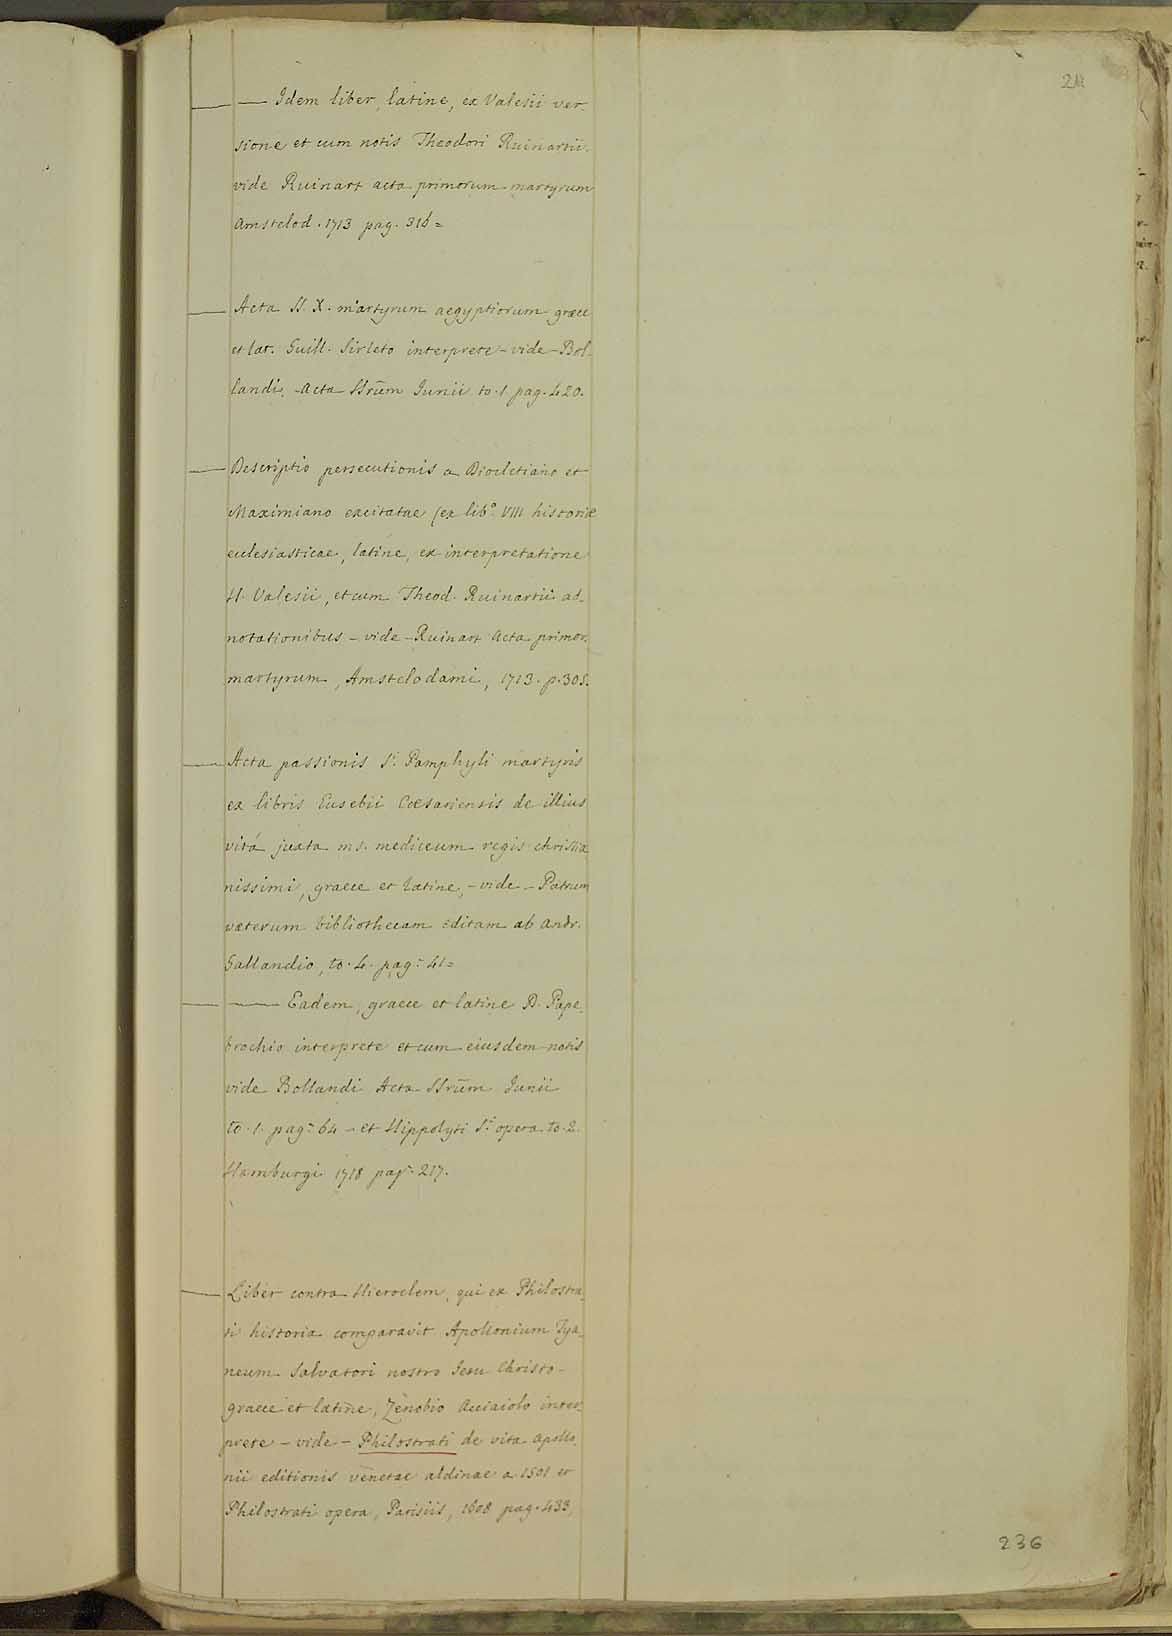 —— Idem liber, latine, ex Valesii ver-
sione et cum notis Theodori Ruinartii.
vide Ruinart acta primorum martyrum
Amstelod. 1713 pag. 316=
— Acta SS. X. martyrum aegyptiorum graece
et lat. Guill. Sirleto interprete – vide – Bol-
landi, Acta SSrūm Junii to. 1 pag. 420.
— Descriptio persecutionis a Diocletiano et
Maximiano excitatae (ex lib.º VIII historiæ
ecclesiasticae, latine, ex interpretatione
H. Valesii, et cum Theod. Ruinartii ad-
notationibus – vide – Ruinart Acta primor.
martyrum, Amstelodami, 1713. p. 305.
— Acta passionis S.ⁱ Pamphyli martyris
ex libris Eusebii Cæsariensis de illius
vitá juxta ms. mediceum regis christia
nissimi, graece et latine, – vide – Patrum
væterum bibliothecam editam ab Andr.
Gallandio, to. 4. pag.ª 41=
— —— Eadem, graece et latine D. Pape-
brochio interprete et cum eiusdem notis
vide Bollandi Acta SSrūm Junii
to. 1. pag.ª 64 – et Hippolyti S.ⁱ opera to. 2.
Hamburgi 1718 pag.ª 217.
— Liber contra Hieroclem, qui ex Philostra-
ti historia comparavit Apollonium Tya-
neum Salvatori nostro Jesu Christo –
graece et latine, Zenobio Acciaiolo inter-
prete – vide – Philostrati de vita Apollo-
nii editionis venetae aldinae a. 1501 et
Philostrati opera, Parisiis, 1608 pag. 433,
236